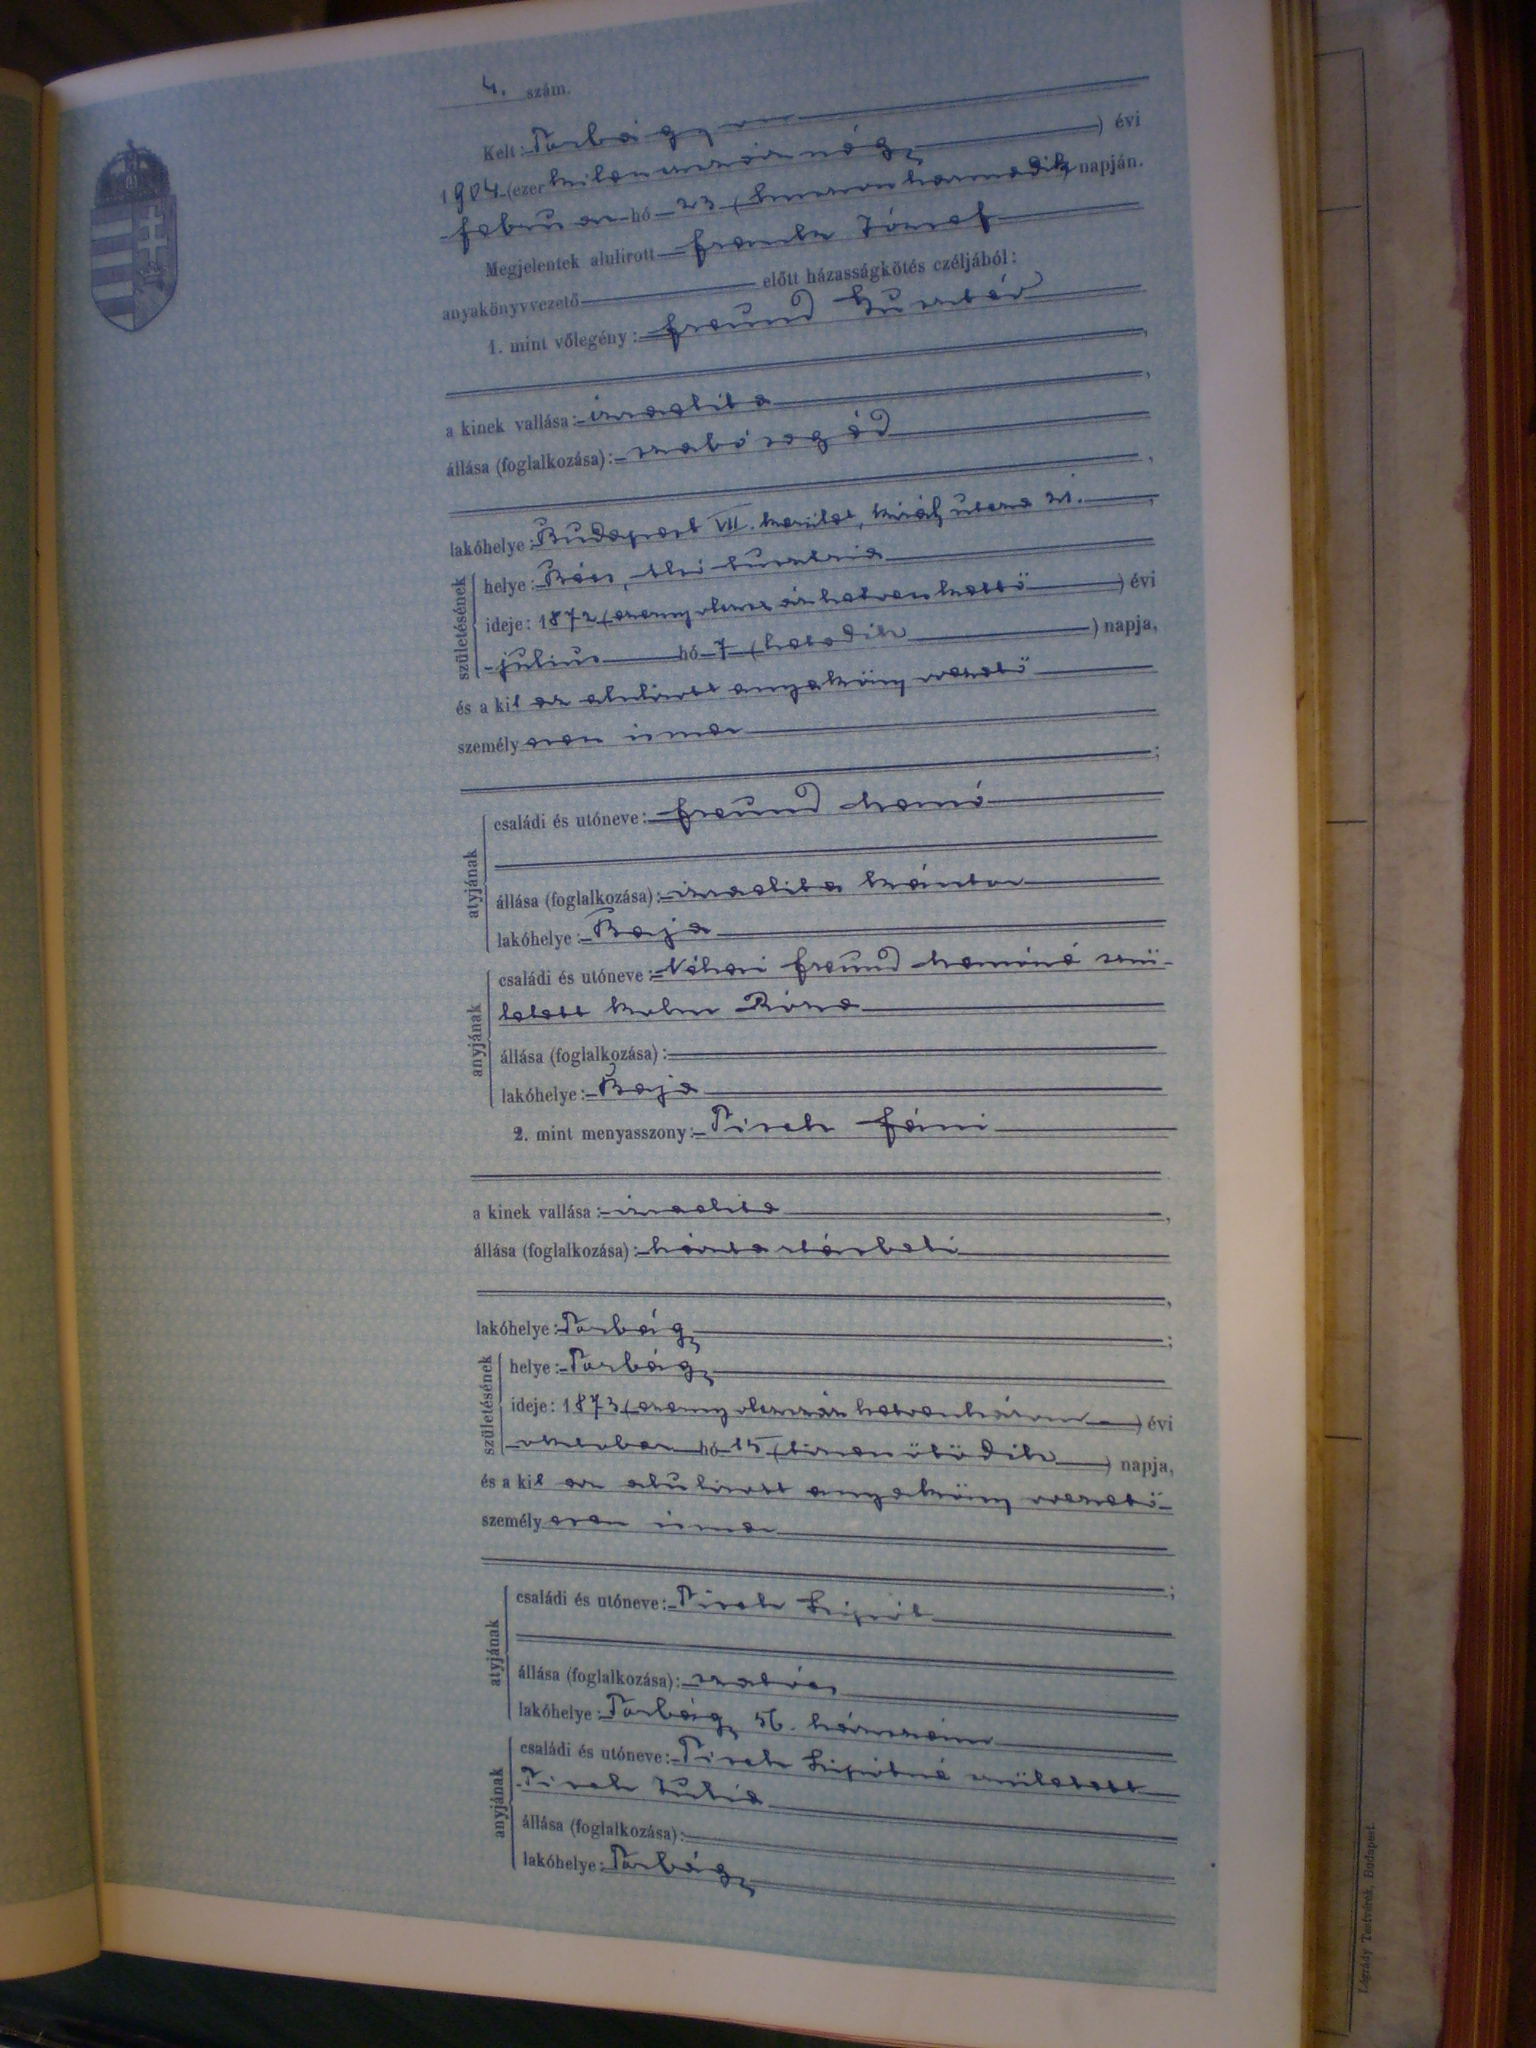 4. szám.
Kelt: Torbágyon
1904 (ezerkilenczszáznégy) évi
február hó 23 (huszonharmadik) napján.
Megjelentek alulirott Frank József
anyakönyvvezető előtt házasságkötés czéljából:
1. mint vőlegény: Freund
a kinek vallása: izraelita
állása (foglalkozása): szabósegéd
lakóhelye: Budapest VII. kerület, király utcza 21.
születésének
helye: Bécs,
ideje: 1872 (ezernyolczszázhetvenkettő) évi
julius hó 7 (hetedik) napja,
és a kit az alulirott anyakönyvvezető
személyesen ismer
;
atyjának
családi és utóneve: Freund
állása (foglalkozása): izraelita kántor
lakóhelye: Baja
anyjának
családi és utóneve: Néhai Freund szü-
letett Kohn Róza
állása (foglalkozása):
lakóhelye: Baja
2. mint menyasszony: Pirek Fáni
a kinek vallása: izraelita
állása (foglalkozása): háztartásbeli
lakóhelye: Torbágy ;
születésének
helye: Torbágy
ideje: 1873 (ezernyolczszázhetvenhárom) évi
október hó 15 (tizenötödik) napja,
és a kit az alulirott anyakönyvvezető
személyesen ismer
;
atyjának
családi és utóneve: Pirek Lipót
állása (foglalkozása):
lakóhelye: Torbágy 56. házszám
anyjának
családi és utóneve: Pirek Lipótné született
Pirek Julia
állása (foglalkozása):
lakóhelye: Torbágy
Légrády Testvérek, Budapest.